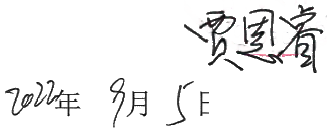 贾恩睿
2022年 9月 5日